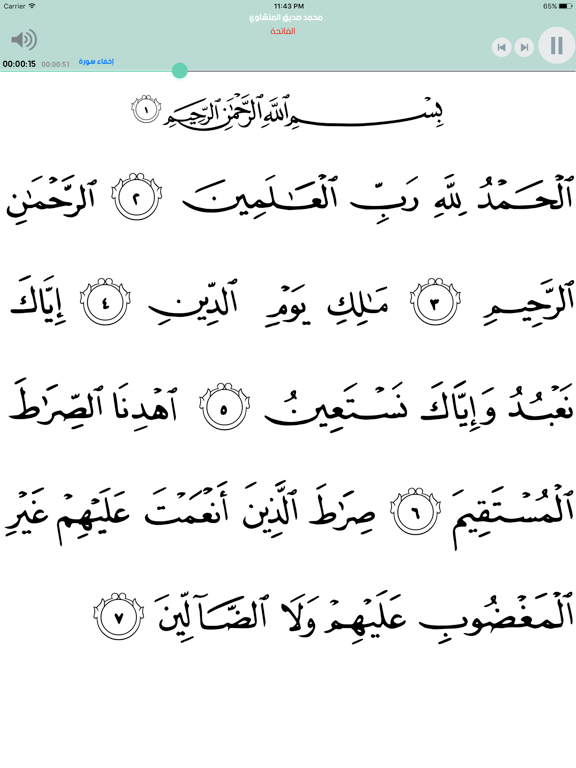 Carrier 11:43 PM 65%
محمد صديق المنشاوي
الفاتحة
00:00:15 00:00:51 إخفاء سورة
بِسْمِ اللَّهِ الرَّحْمَٰنِ الرَّحِيمِ ١
الْحَمْدُ لِلَّهِ رَبِّ الْعَالَمِينَ ٢ الرَّحْمَٰنِ
الرَّحِيمِ ٣ مَالِكِ يَوْمِ الدِّينِ ٤ إِيَّاكَ
نَعْبُدُ وَإِيَّاكَ نَسْتَعِينُ ٥ اهْدِنَا الصِّرَاطَ
الْمُسْتَقِيمَ ٦ صِرَاطَ الَّذِينَ أَنْعَمْتَ عَلَيْهِمْ غَيْرِ
الْمَغْضُوبِ عَلَيْهِمْ وَلَا الضَّالِّينَ ٧